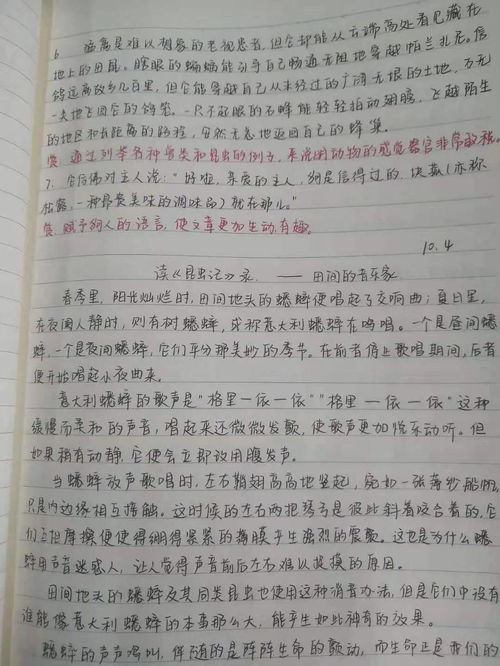 6. 雕离是难以想象的老视患者，但它却能从云端高处看见藏在
地上的田鼠。瞎眼的蝙蝠能引导自己畅通无阻地穿越帕兰扎尼。信
鸽远离故乡几百里，但它能穿越自己从未经过的广阔无垠的土地，万无
一失地飞回它的鸽笼。一只不起眼的石蜂能轻轻拍动翅膀，飞越陌生
的地区和长距离的路程，安然无恙地返回自己的蜂巢。
赏：通过列举各种鸟类和昆虫的例子，来说明动物的感觉器官非常敏锐。
7. 它后佛对主人说："好啦，亲爱的主人，狗是信得过的，块菰（亦称
松露，一种最美味的调味品）就在那儿。"
赏：赋予狗人的语言，使文章更加生动有趣。
10.4
读《昆虫记》录。——田间的音乐家
春季里，阳光灿烂时，田间地头的蟋蟀便唱起了交响曲；夏日里，
在夜阑人静时，则有树蟋蟀，或称意大利蟋蟀在鸣唱。一个是昼间蟋
蟀，一个是夜间蟋蟀，它们平分那美妙的季节。在前者停止歌唱期间，后者
便开始唱起小夜曲来。
意大利蟋蟀的歌声是"格里一依一依""格里一依一依"这种
缓慢而柔和的声音，唱起来还微微发颤，使歌声更加悦耳动听。但
如果稍有动静，它便会立即改用腹发声。
当蟋蟀放声歌唱时，左右鞘翅高高地竖起，宛如一张薄纱船帆，
只是内边缘相互接触。这时候的左右两把琴弓是彼此斜着咬合着的，它
们互相摩擦便使得绷得紧紧的薄膜产生强烈的震颤。这也是为什么蟋
蟀用声音迷惑人，让人觉得声音前后左右难以捉摸的原因。
田间地头的蟋蟀及其同类昆虫也使用这种消音办法，但是它们中没有
谁能像意大利蟋蟀的本事那么大，能产生如此神奇的效果。
蟋蟀的声声鸣叫，伴随的是阵阵生命的颤动，而生命正是我们的